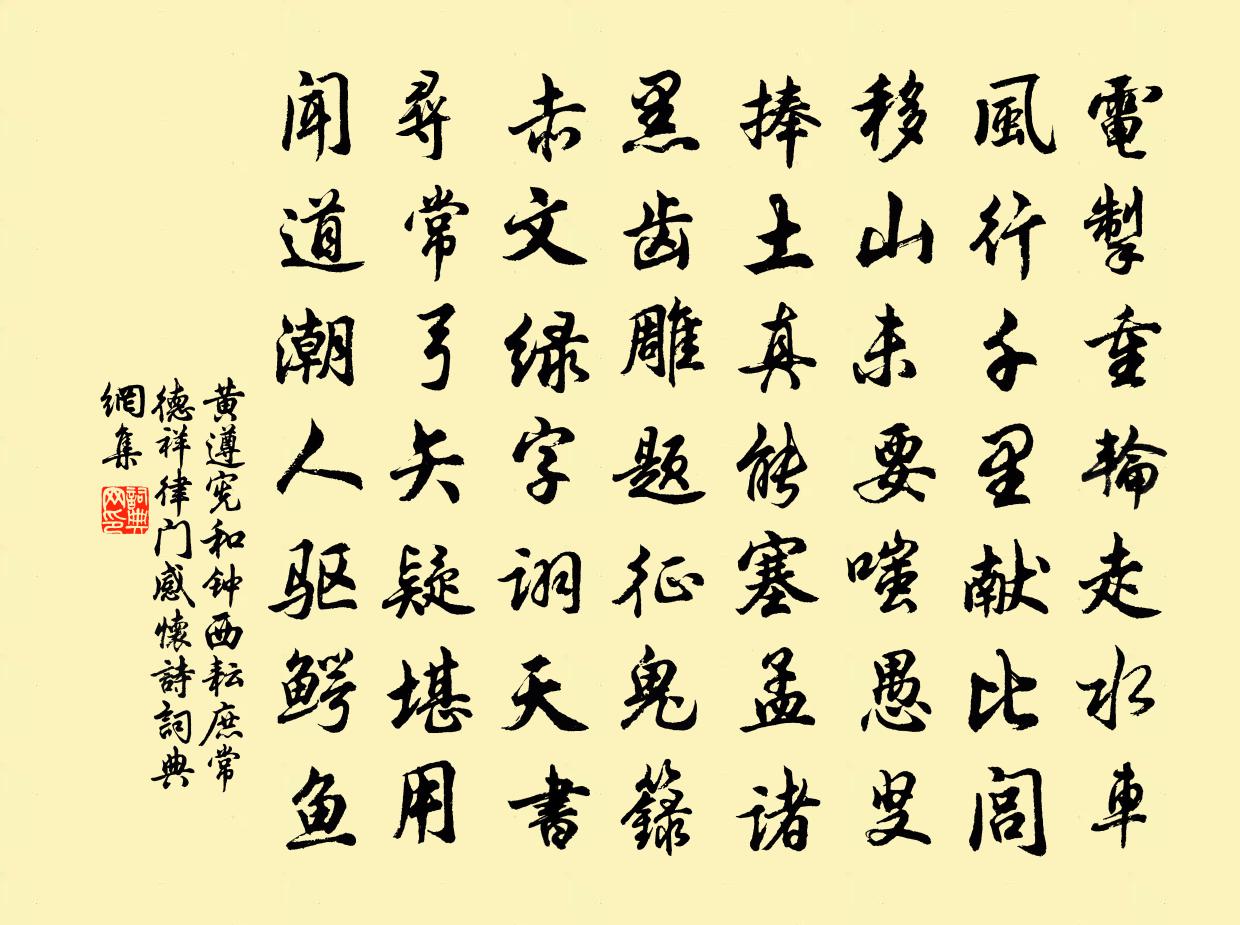 電掣重輪走水車
風行千里献比閭
移山未要嗤愚叟
捧土真能塞孟诸
黑齿雕题征鬼籙
赤文绿字诩天書
尋常弓矢疑堪用
闻道潮人驱鳄鱼
黄遵宪和钟西耘庶常
德祥律门感懷詩詞典
網集
詞典网印